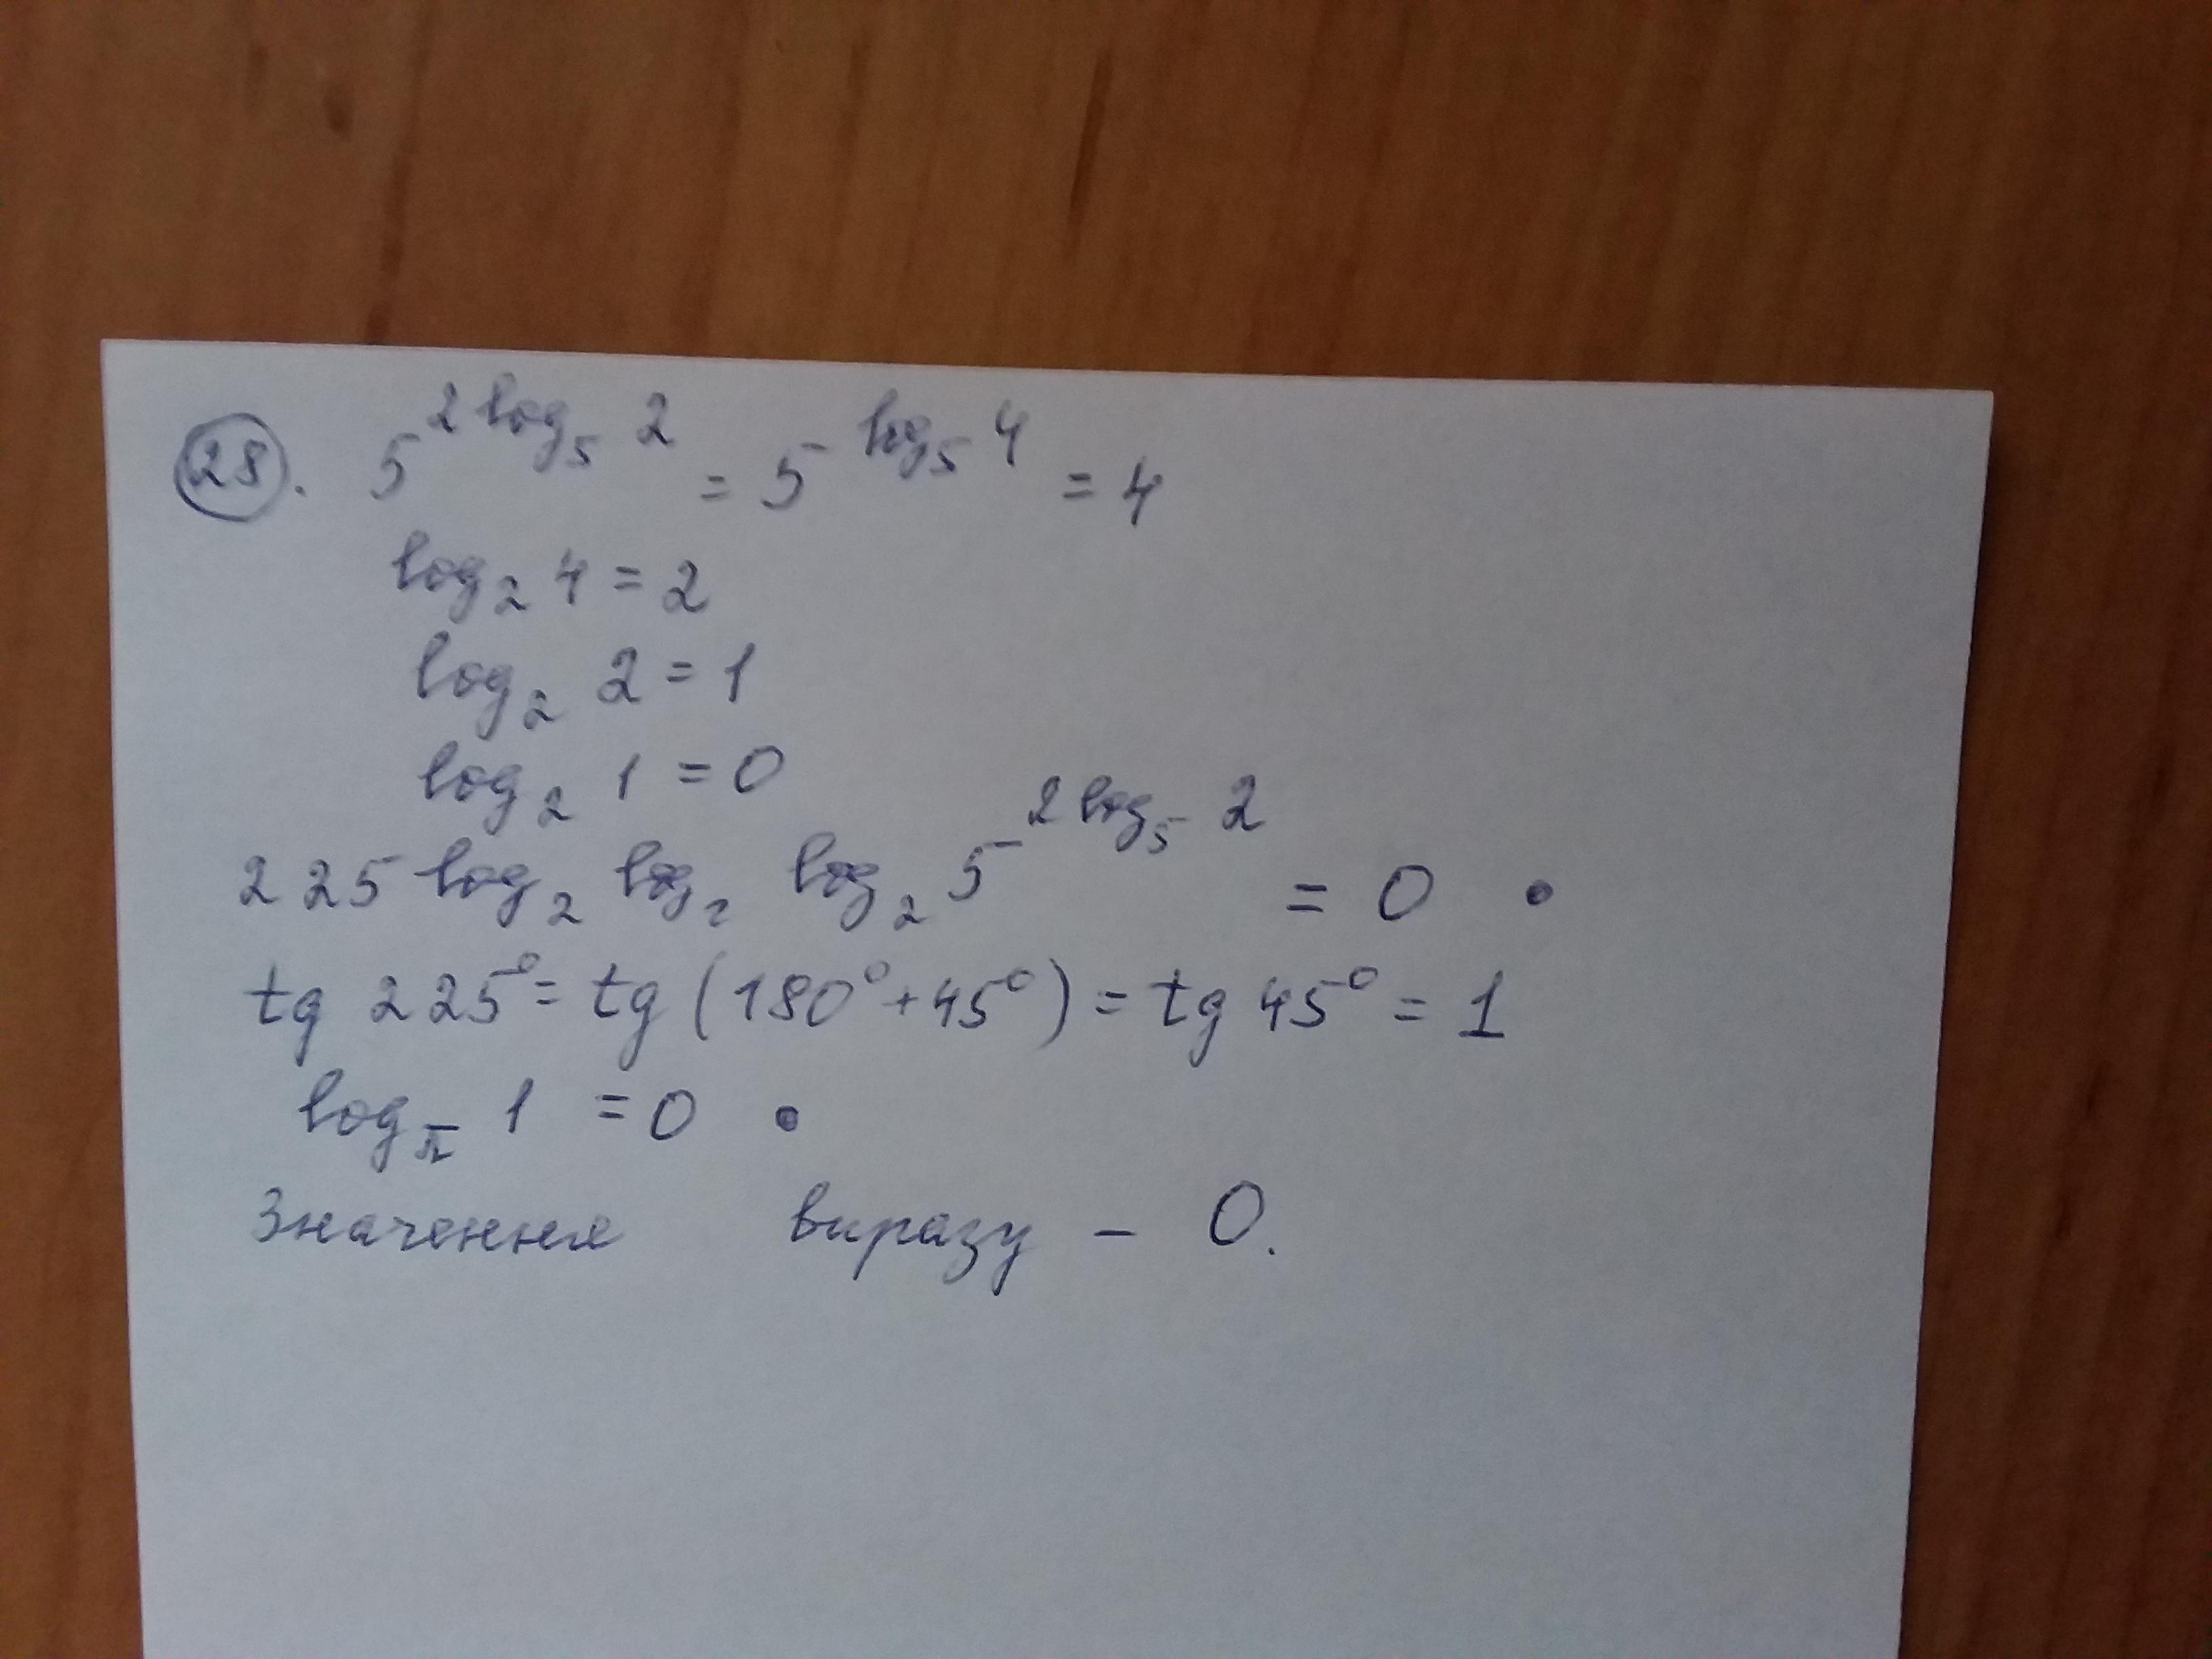 28. 5^{2 log_5 2} = 5^{log_5 4} = 4
log_2 4 = 2
log_2 2 = 1
log_2 1 = 0
225 log_2 log_2 log_2 5^{2 log_5 2} = 0 •
tg 225° = tg (180° + 45°) = tg 45° = 1
log_π 1 = 0 •
Значення виразу – 0.